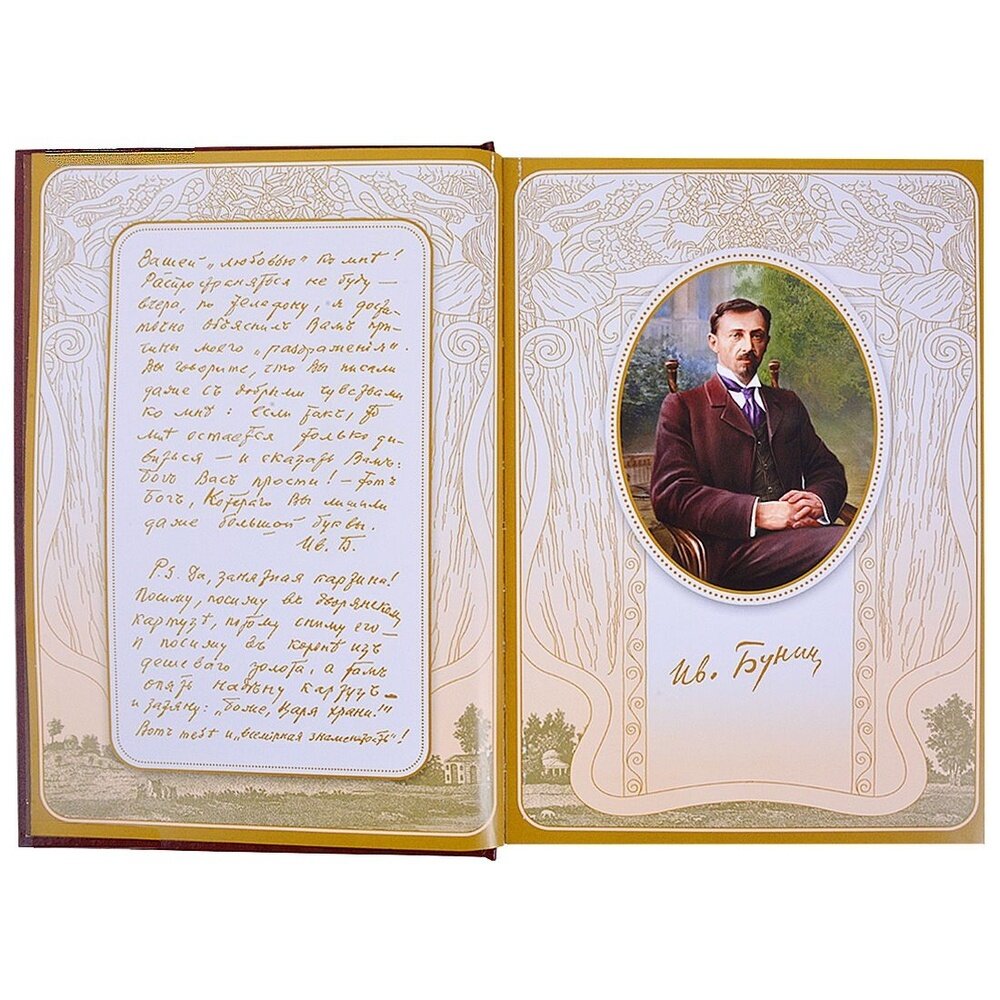 Вашей „любовью" ко мнѣ!
Распространяться не буду —
вчера, по телефону, я доста-
точно объяснилъ Вамъ при-
чины моего „раздраженія".
Вы говорите, что Вы писали
даже съ добрыми чувствами
ко мнѣ: если такъ, то
мнѣ остается только ди-
виться — и сказать Вамъ:
Богъ Васъ прости! — тотъ
Богъ, Котораго Вы лишили
даже большой буквы.
Ив. Б.
P.S. Да, занятная картина!
Посижу, посижу въ дворянскомъ
картузѣ, потомъ сниму его —
и посижу въ коронѣ изъ
дешеваго золота, а тамъ
опять надѣну картузъ —
и затяну: „Боже, Царя храни!"
Вотъ тебѣ и „всемірная знаменитость"!
Ив. Бунин